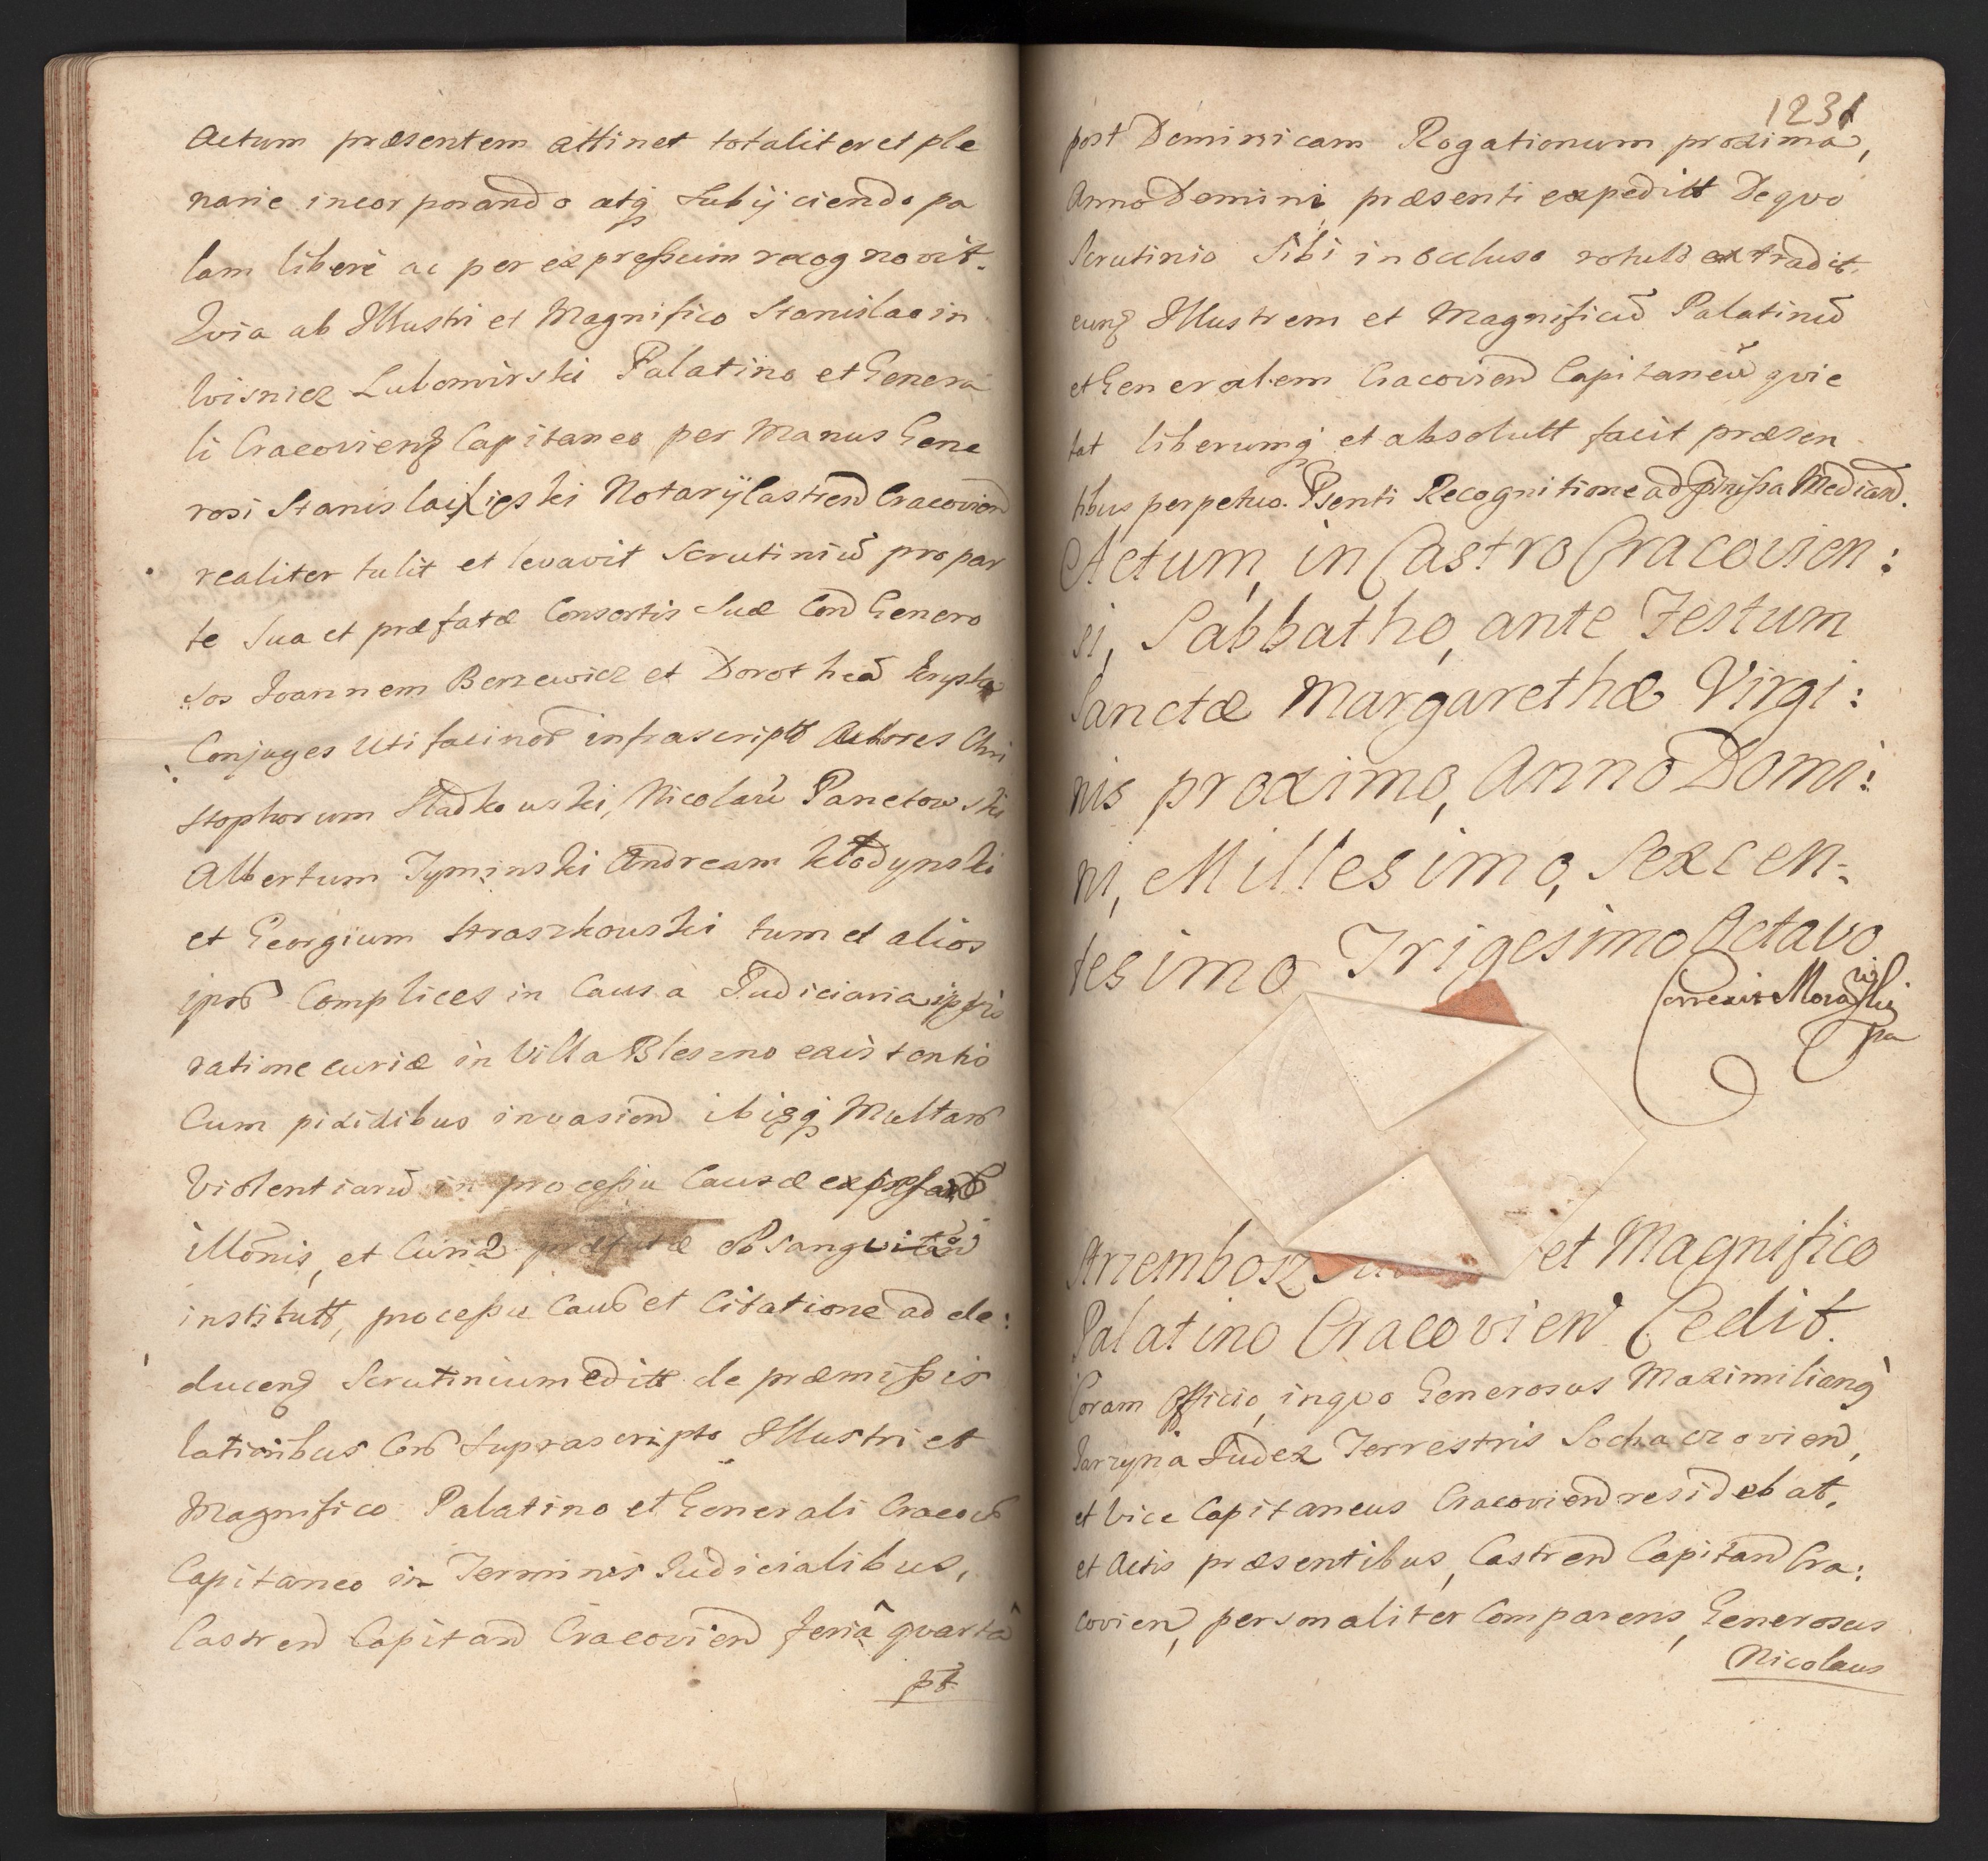 Actum præsentem attinet totaliter et ple
narie incorporando atq subijciendo pa
lam liberè ac per expressum recognovit.
Quia ab Illustri et Magnifico Stanislao in
Wisnicz Lubomirski Palatino et Genera
li Cracovien Capitaneo per Manus Gene
rosi Stanislai Notarij Castren Cracovien
realiter tulit et levavit Scrutiniū pro par
te Sua et præfatæ Consortis Suæ Con Genero
sos Joannem Berzewicz et Dorotheā
Conjuges Uti facinor infrascript Authores Chri
stophorum Sladkowski, Nicolaū Panetowski
Albertum Tyminski Andream Kłodynski
et Georgium Straszkouski tum et alios
ipsor Complices in Causa Judiciaria ipsis
ratione curiæ in Villa Bleszno existentis
Cum pixidibus invasion ibiqq Multar
Violentiarū in processu Causæ expressar
illōnis, et Curiæ præfatæ
institutt, processu Caus et Citatione ad de:
ducend Scrutinium editt de præmissis
lationibus Cor suprascripto Illustri et
Magnifico Palatino et Generali Cracov
Capitaneo in Terminis Judicialibus,
Castren Capitan Cracovien feriâ quartâ
pt
1231
post Dominicam Rogationum proximā,
Anno Domini præsenti expeditt De quo
Scrutinio Sibi in occluso rotulo extradit.
eunq Illustrem et Magnificū Palatinū
et Generalem Cracovien Capitaneū quie
tat liberumq et absolutt facit præsen
tibus perpetuo. Psenti Recognitione ad præmissa Median.
Actum, in Castro Cracovien:
si, Sabbatho, ante Festum
Sanctæ Margarethæ Virgi:
nis proximo, Anno Domi:
ni, Millesimo, Sexcen:
tesimo Trigesimo Octavo
Correxit Mora
pa
Strzembosz et Magnifico
Palatino Cracovien Cedit.
Coram Officio, in quo Generosus Maximilianq
Jarzyna Judex Terrestris Sochaczovien,
et Vice Capitaneus Cracovien residebat,
et Actis præsentibus, Castren Capitan Cra:
covien, personaliter Comparens, Generosus
Nicolaus